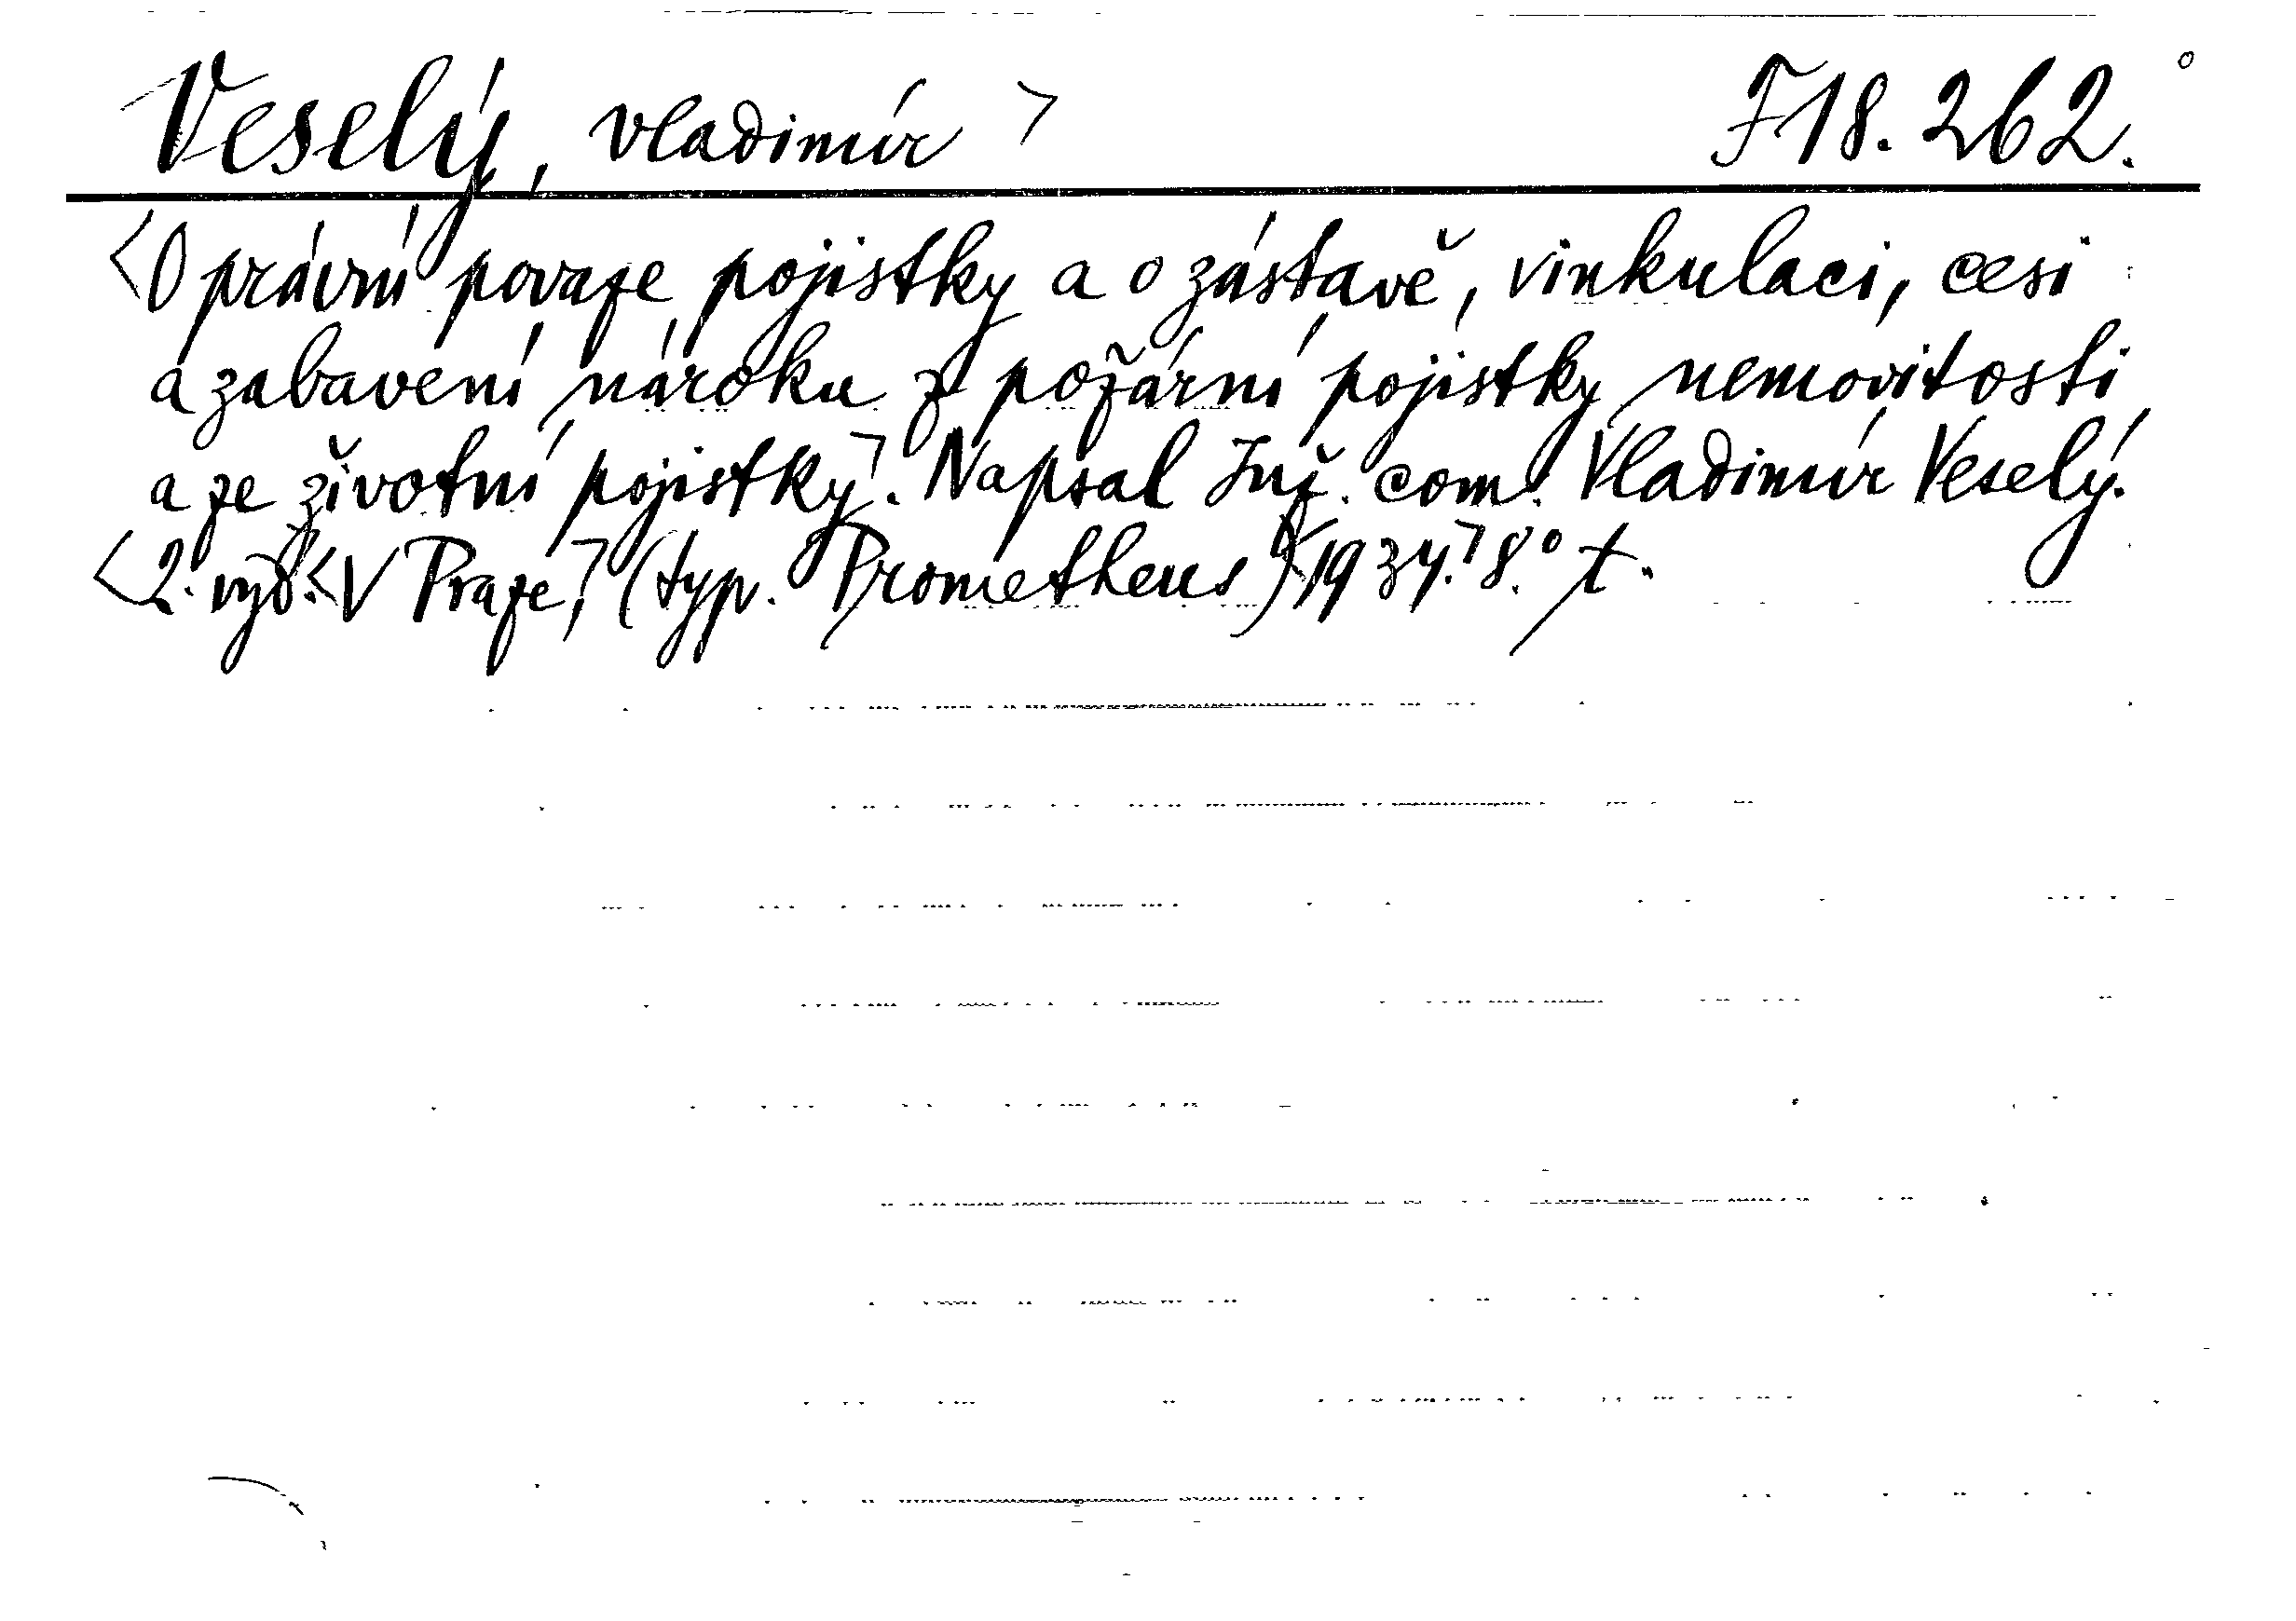 Veselý, Vladimír > F 18.262.
<O právní povaze pojistky a o zástavě, vinkulaci, cesi
a zabavení nároku z požární pojistky nemovitosti
a ze životní pojistky>. Napsal Inž. com. Vladimír Veselý.
<2. vyd. <V Praze,> (typ. Prometheus) <1934.> 8.° t.